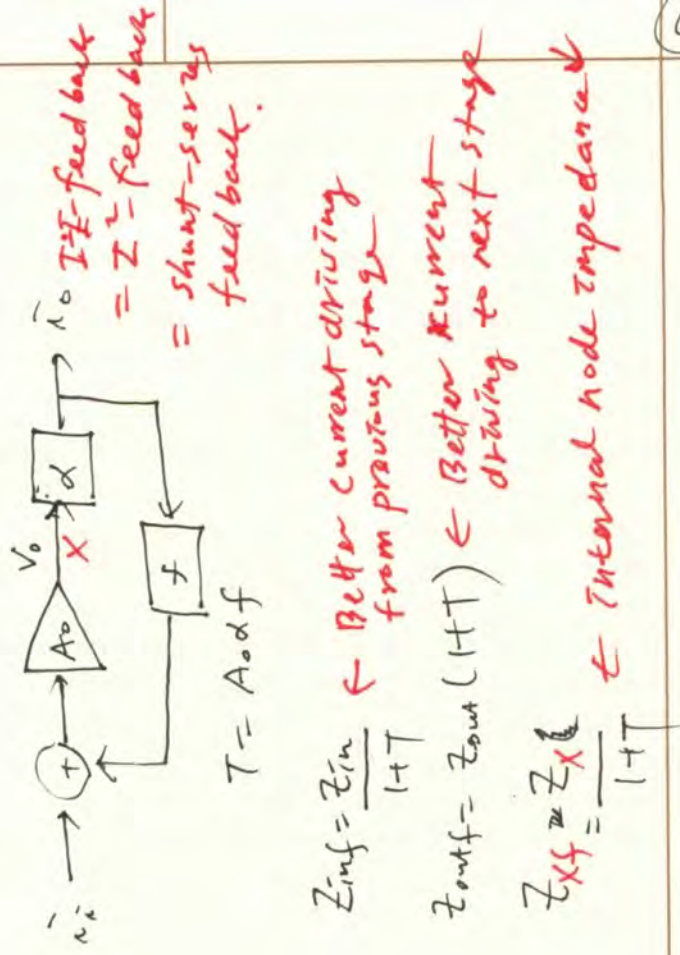 I²I-feedback
= I²-feedback
= shunt-series
feedback.
i_i → + A₀ V₀ X α → i₀
f
T = A₀αf
Z_inf = Z_in / 1+T ← Better current driving
from previous stage
Z_outf = Z_out (1+T) ← Better current
driving to next stage
Z_Xf = Z_X / 1+T ← internal node impedance ↓